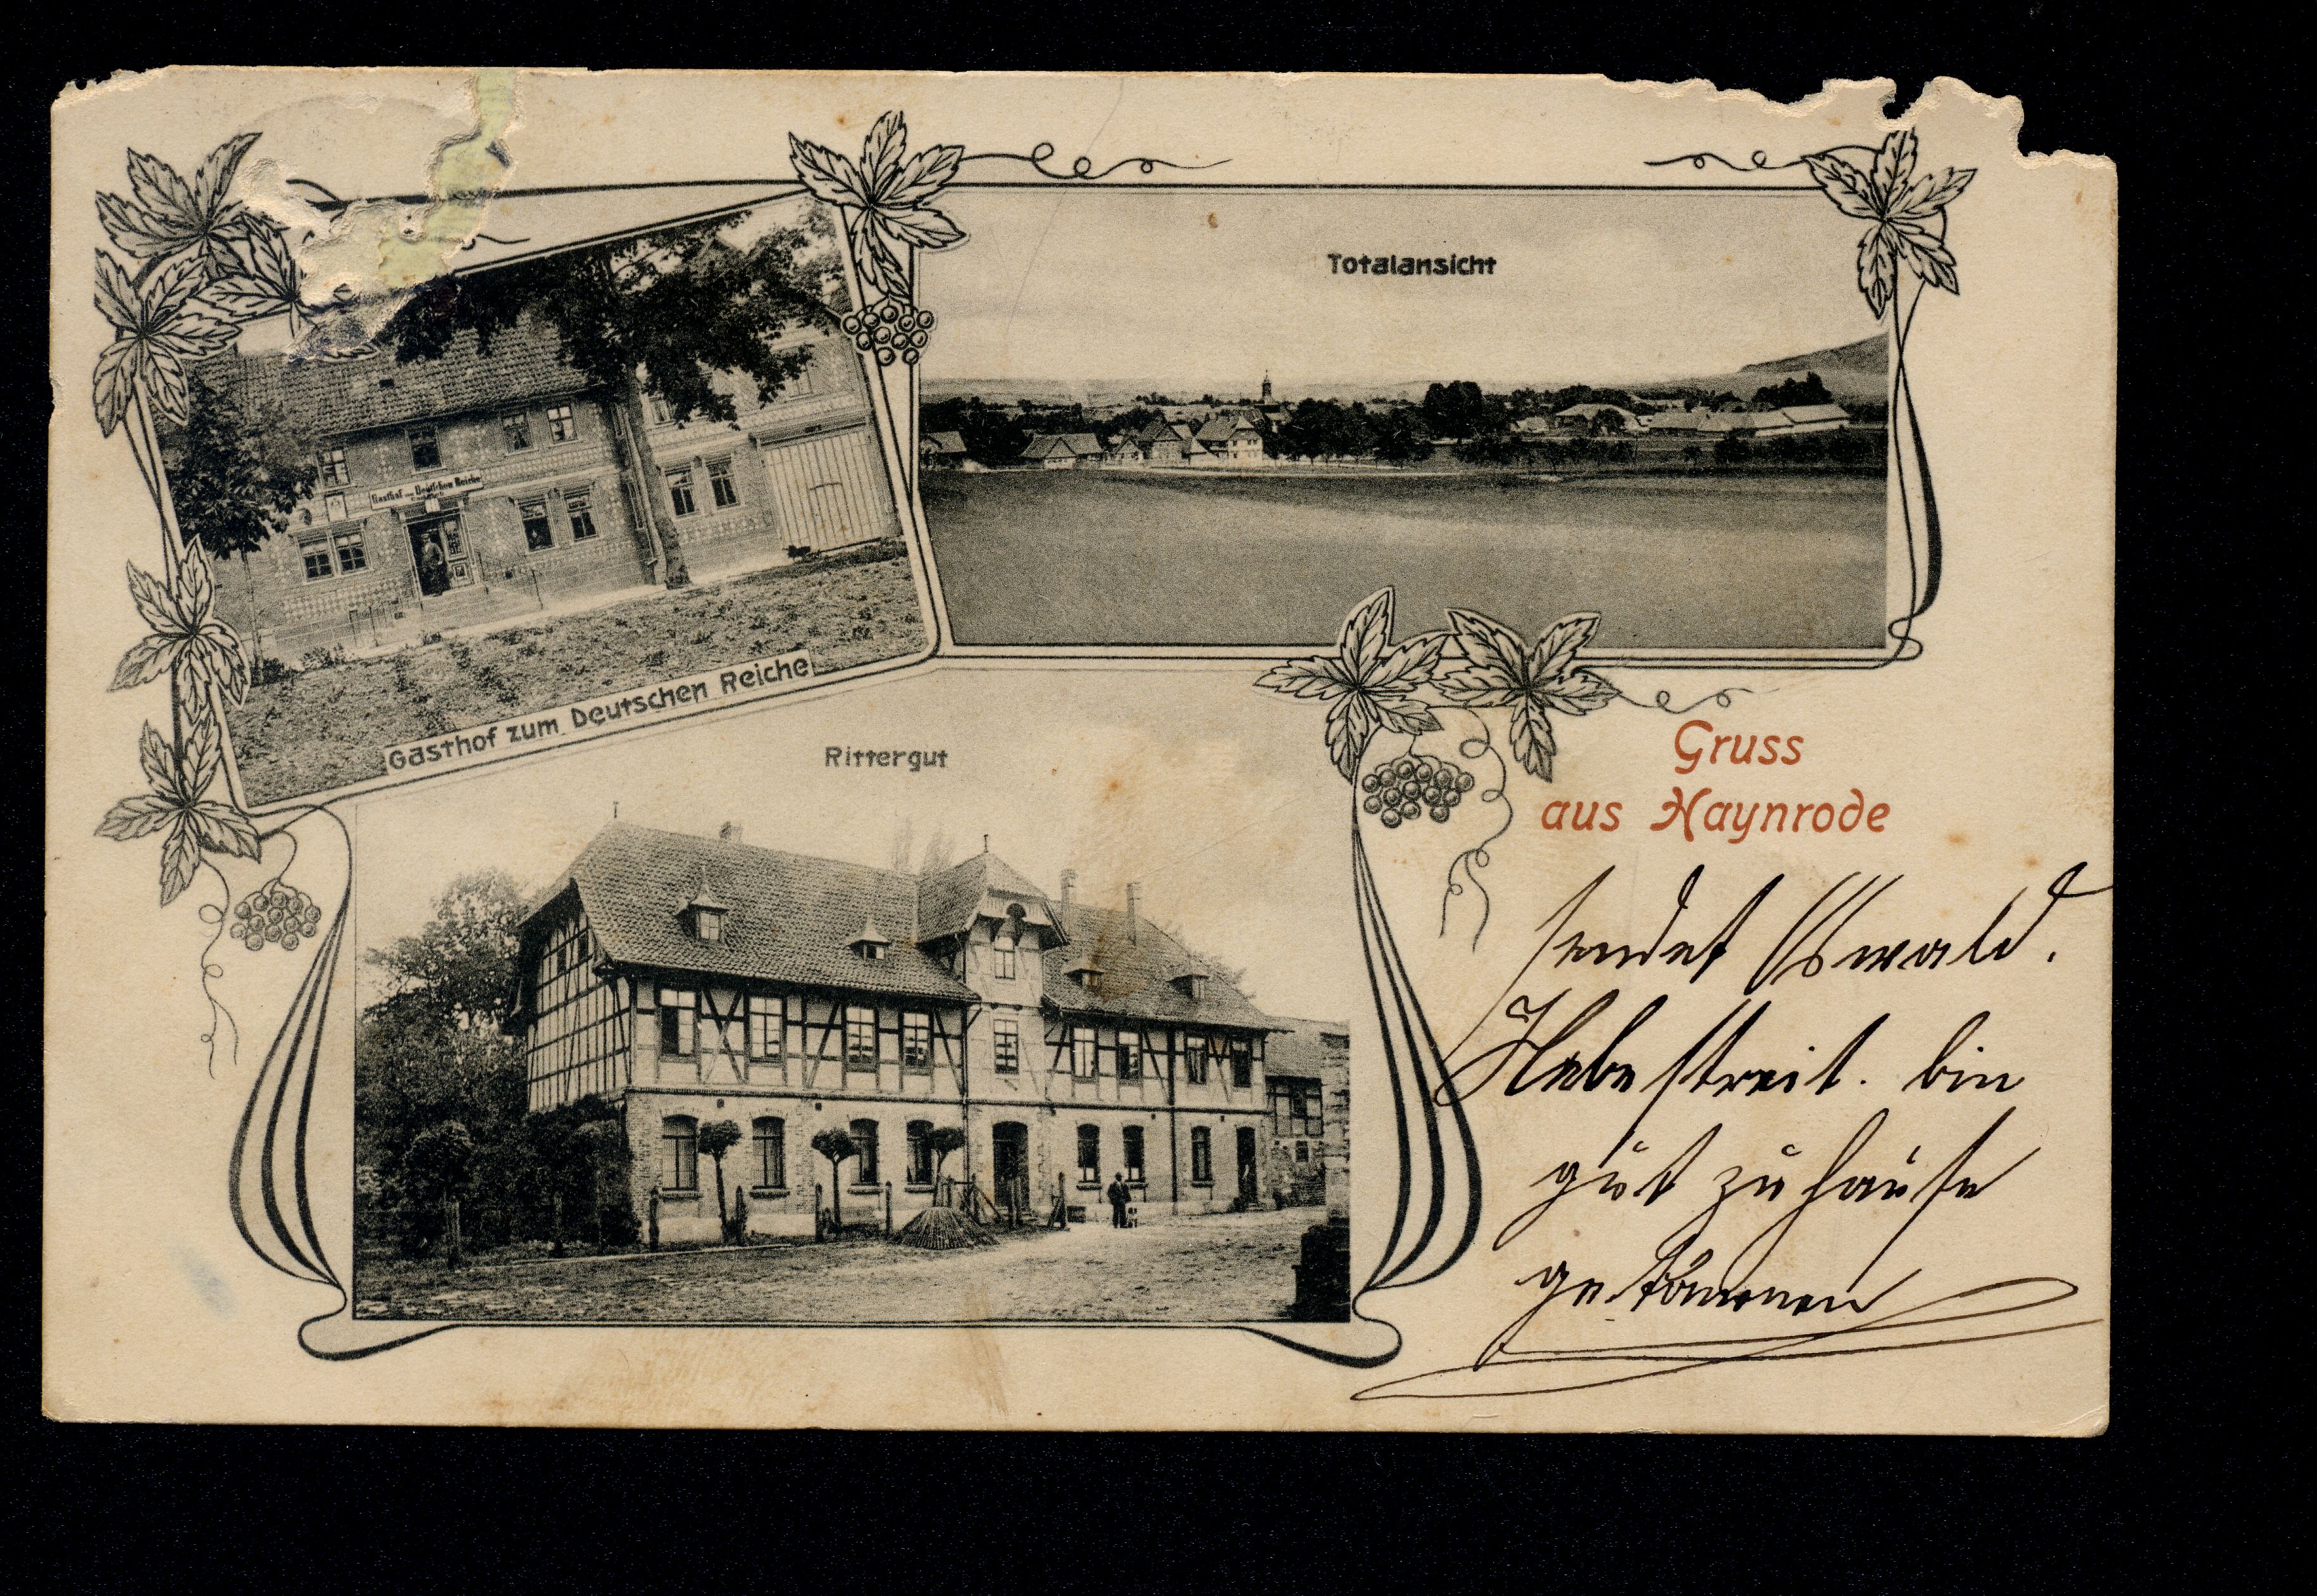 Totalansicht
Gasthof zum Deutschen Reiche
Gasthof zum Deutschen Reiche
Rittergut
Gruss
aus Haynrode
sendet Oswald.
Hebestreit. bin
gut zu hause
gekommen